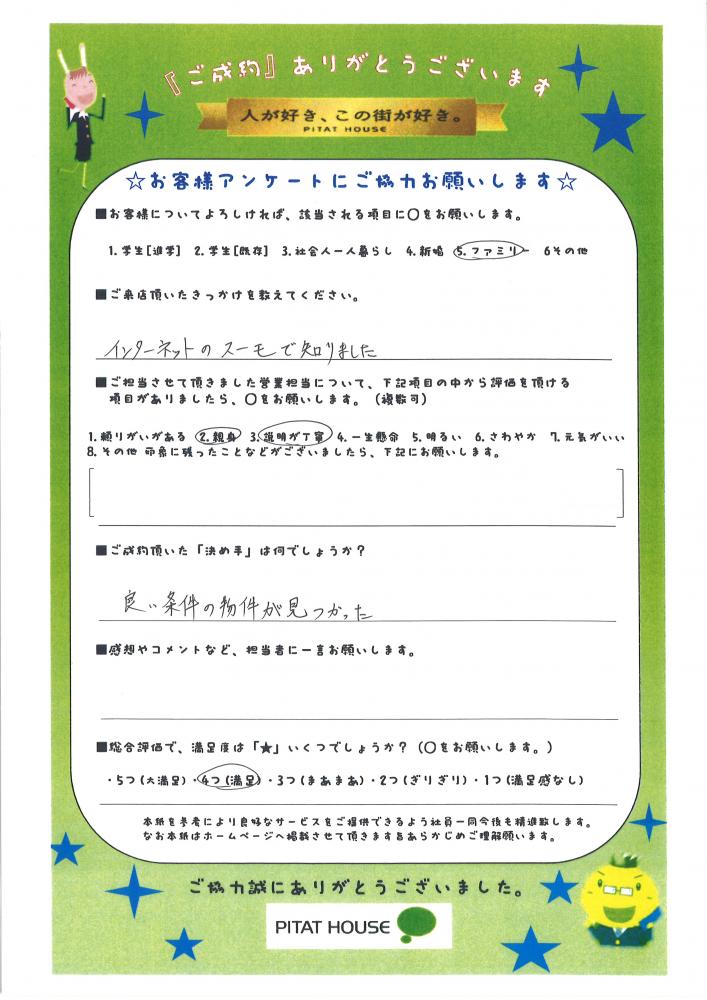 『ご成約』ありがとうございます
人が好き、この街が好き。
PiTAT HOUSE
☆お客様アンケートにご協力お願いします☆
■お客様についてよろしければ、該当される項目に〇をお願いします。
1. 学生[進学] 2. 学生[既存] 3. 社会人一人暮らし 4. 新婚 5. ファミリー 6その他
■ご来店頂いたきっかけを教えてください。
インターネットのスーモで知りました
■ご担当させて頂きました営業担当について、下記項目の中から評価を頂ける
項目がありましたら、〇をお願いします。（複数可）
1. 頼りがいがある 2. 親身 3. 説明が丁寧 4. 一生懸命 5. 明るい 6. さわやか 7. 元気がいい
8. その他 印象に残ったことなどがございましたら、下記にお願いします。
■ご成約頂いた「決め手」は何でしょうか？
良い条件の物件が見つかった
■感想やコメントなど、担当者に一言お願いします。
■総合評価で、満足度は「★」いくつでしょうか？（〇をお願いします。）
・5つ(大満足)・4つ(満足)・3つ(まあまあ)・2つ(ぎりぎり)・1つ(満足感なし)
本紙を参考により良好なサービスをご提供できるよう社員一同今後も精進致します。
なお本紙はホームページへ掲載させて頂きます旨あらかじめご理解願います。
ご協力誠にありがとうございました。
PITAT HOUSE